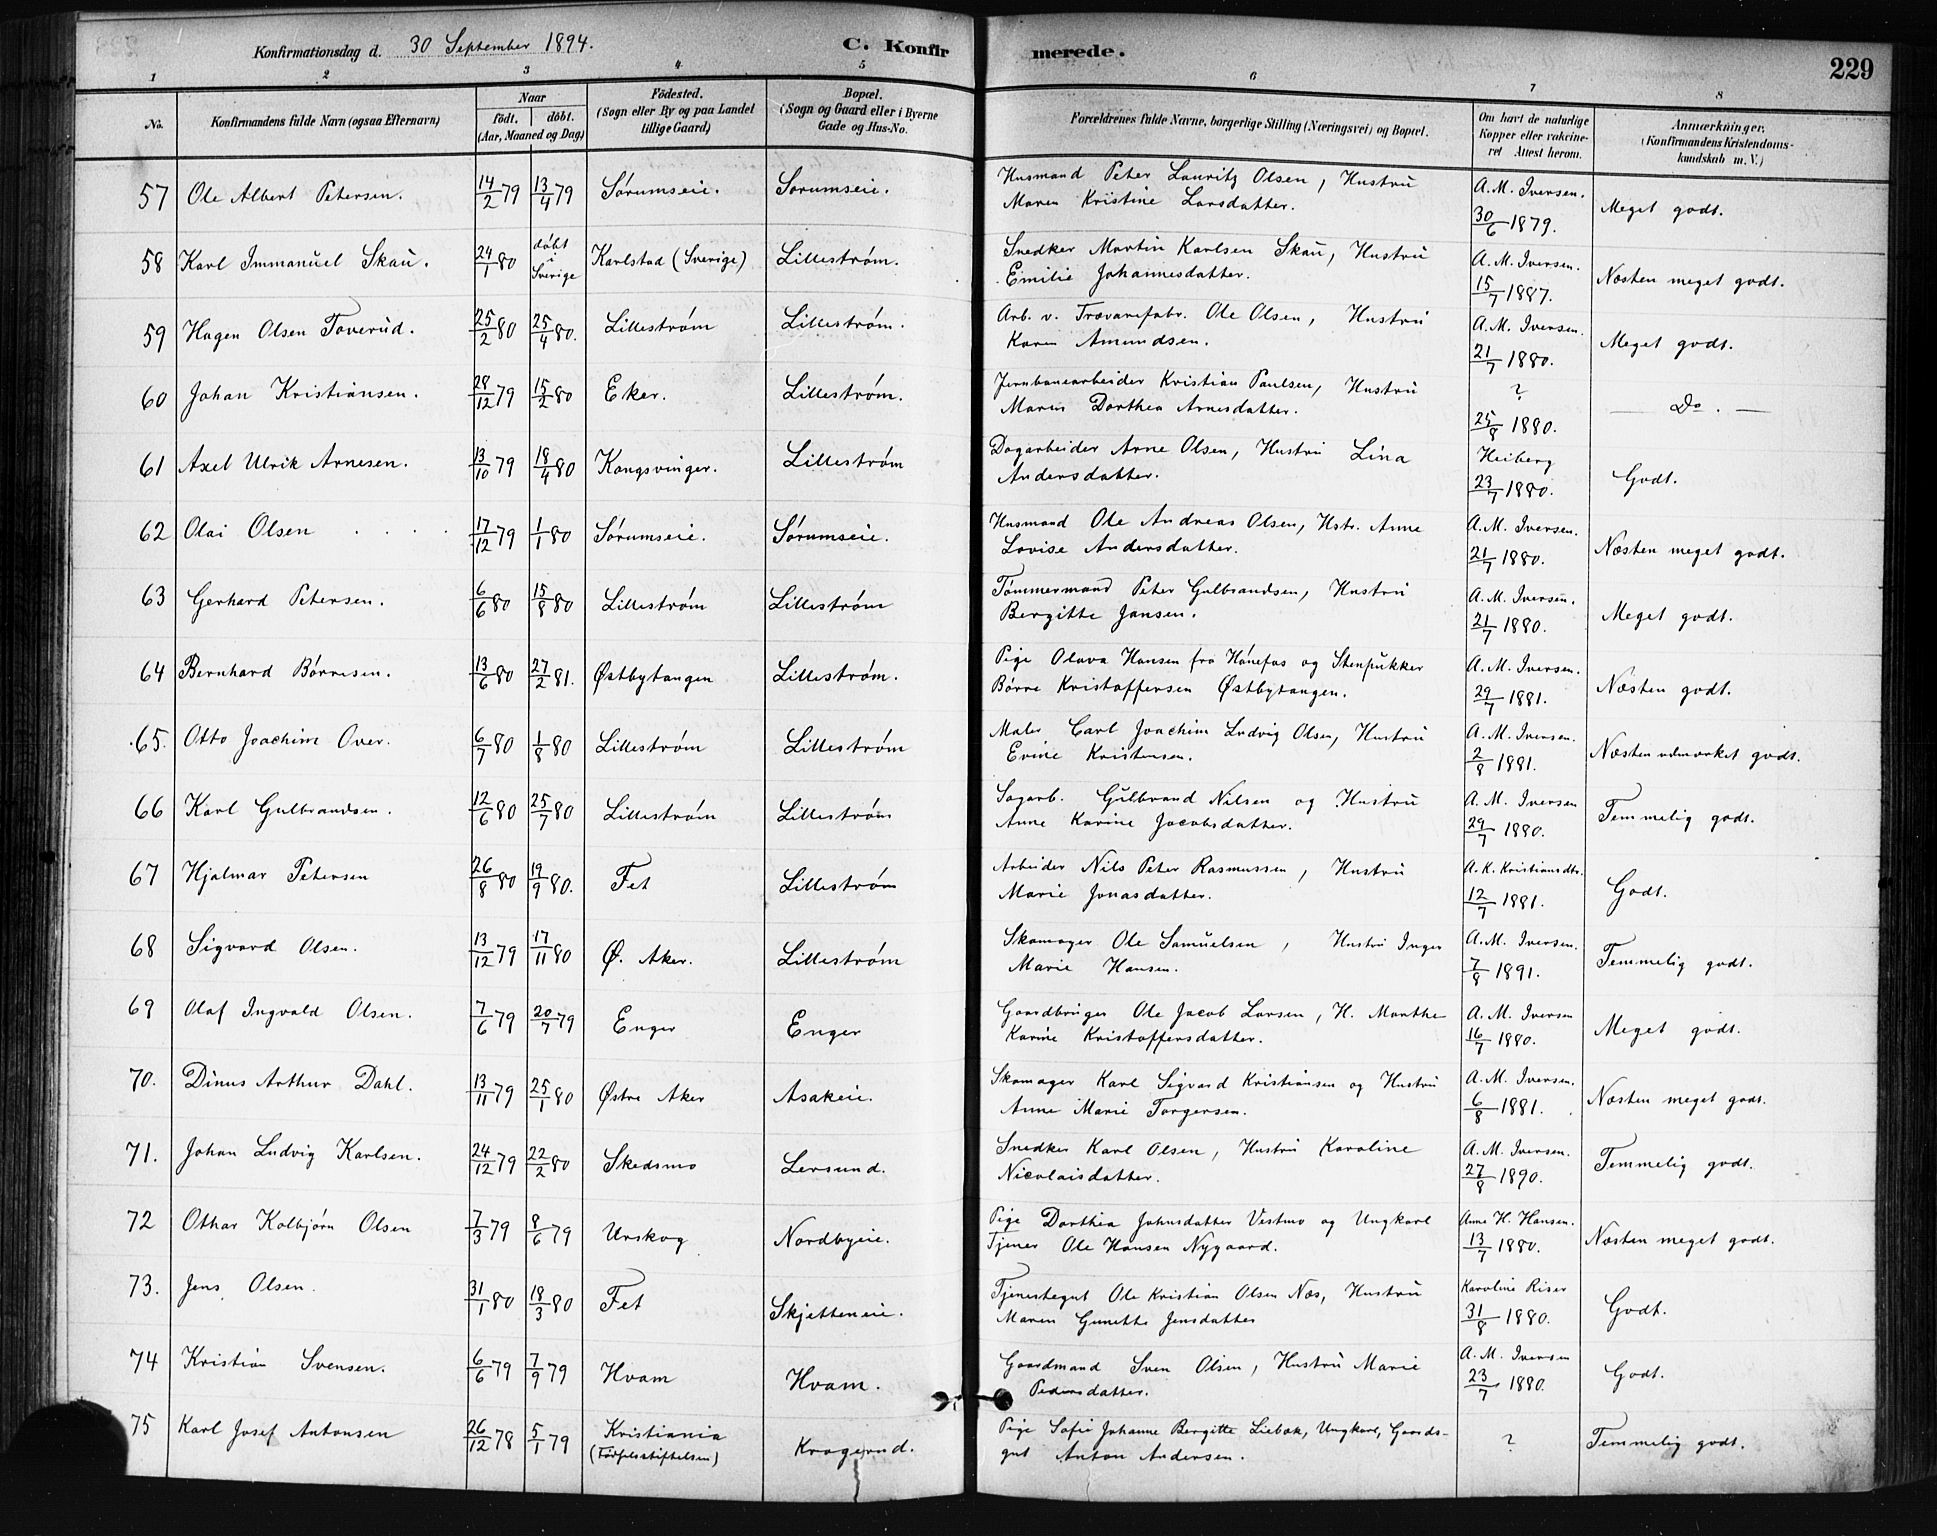 Konfirmationsdag d. 30 September 1894. C. Konfirmerede. 229
1 2 3 4 5 6 7 8
No. | Konfirmandens fulde Navn (ogsaa Efternavn) | Naar født. | døbt. (Aar, Maaned og Dag) | Fødested. (Sogn eller By og paa Landet tillige Gaard) | Bopæl. (Sogn og Gaard eller i Byerne Gade og Hus-No. | Forældrenes fulde Navne, borgerlige Stilling (Næringsvei) og Bopæl. | Om havt de naturlige Kopper eller vakcineret Attest herom. | Anmærkninger. (Konfirmandens Kristendomskundskab m. V.)
57 Ole Albert Petersen. 14/2 79 13/4 79 Sørumseie. Sørumseie. Husmand Peter Lauritz Olsen, Hustru Maren Kristine Larsdatter. A. M. Iversen. 30/6 1879. Meget godt.
58 Karl Immanuel Skau. 24/1 80 døbt i Sverige Karlstad (Sverige) Lillestrøm. Snedker Martin Karlsen Skau, Hustru Emilie Johannesdatter. A. M. Iversen. 15/7 1887. Næsten meget godt.
59 Hagen Olsen Toverud. 25/2 80 25/4 80. Lillestrøm Lillestrøm. Arb. v. Trævarefabr. Ole Olsen, Hustru Karen Amundsen. A. M. Iversen. 21/7 1880. Meget godt.
60 Johan Kristiansen. 28/12 79 15/2 80 Eker. Lillestrøm. Jernbanearbeider Kristian Paulsen, Hustru Maren Dorthea Arnesdatter. ? 25/8 1880. — Do. —
61 Axel Ulrik Arnesen. 13/10 79 18/4 80 Kongsvinger. Lillestrøm Dagarbeider Arne Olsen, Hustru Lina Andersdatter. Heiberg 23/7 1880. Godt.
62 Olai Olsen 17/12 79 1/1 80 Sørumseie. Sørumseie. Husmand Ole Andreas Olsen, Hstr. Anne Lovise Andersdatter. A. M. Iversen. 21/7 1880. Næsten meget godt.
63 Gerhard Petersen. 6/6 80 15/8 80 Lillestrøm Lillestrøm Tømmermand Peter Gulbrandsen, Hustru Bergitte Jansen. A. M. Iversen. 21/7 1880. Meget godt.
64 Bernhard Børresen. 13/6 80 27/2 81. Østbytangen Lillestrøm. Pige Olava Hansen fra Hønefos og Stenpukker Børre Kristoffersen Østbytangen. A. M. Iversen. 29/7 1881. Næsten godt.
65. Otto Joachim Over. 6/7 80 1/8 80 Lillestrøm Lillestrøm Maler Carl Joachim Ludvig Olsen, Hustru Evine Kristensen. A. M. Iversen. 2/8 1881. Næsten udmærket godt.
66 Karl Gulbrandsen. 12/6 80 25/7 80 Lillestrøm Lillestrøm Sagarb. Gulbrand Nilsen og Hustru Anne Karine Jacobsdatter. A. M. Iversen 29/7 1880. Temmelig godt.
67 Hjalmar Petersen 26/8 80 19/9 80. Fet Lillestrøm Arbeider Nils Peter Rasmussen, Hustru Marie Jonasdatter. A. K. Kristiansdtr. 12/7 1881. Godt.
68 Sigvard Olsen. 13/12 79 17/11 80 Ø. Aker. Lillestrøm Skomager Ole Samuelsen, Hustru Inger Marie Hansen. A. M. Iversen. 7/8 1891. Temmelig godt.
69 Olaf Ingvald Olsen. 7/6 79 20/7 79 Enger Enger Gaardbruger Ole Jacob Larsen, H. Marthe Karine Kristoffersdatter. A. M. Iversen 16/7 1880. Meget godt.
70. Dinus Arthur Dahl. 13/11 79 25/1 80 Østre Aker Asakeie. Skomager Karl Sigvard Kristiansen og Hustru Anne Marie Torgersen. A. M. Iversen. 6/8 1881. Næsten meget godt.
71. Johan Ludvig Karlsen. 24/12 79 22/2 80 Skedsmo Lersund. Snedker Karl Olsen, Hustru Karoline Nicolaisdatter. A. M. Iversen. 27/8 1890. Temmelig godt.
72 Othar Kolbjørn Olsen 7/3 79 8/6 79 Urskog Nordbyeie. Pige Dorthea Johnsdatter Vestmo og Ungkarl Tjener Ole Hansen Nygaard. Anne H. Hansen. 13/7 1880. Næsten meget godt.
73. Jens Olsen. 31/1 80 18/3 80 Fet Skjetteneie. Tjenestegut Ole Kristian Olsen Næs, Hustru Maren Gunette Jensdatter Karoline Riser 31/8 1880. Godt.
74 Kristian Svensen. 6/6 79 7/9 79 Hvam Hvam. Gaardmand Sven Olsen, Hustru Marie Pedersdatter. A. M. Iversen 23/7 1880. Godt.
75 Karl Josef Antonsen 26/12 78 5/1 79 Kristiania (Fødselsstiftelsen) Kragerud. Pige Sofie Johanne Bergitte Liebak, Ungkarl, Gaardsgut Anton Andersen. ? Temmelig godt.